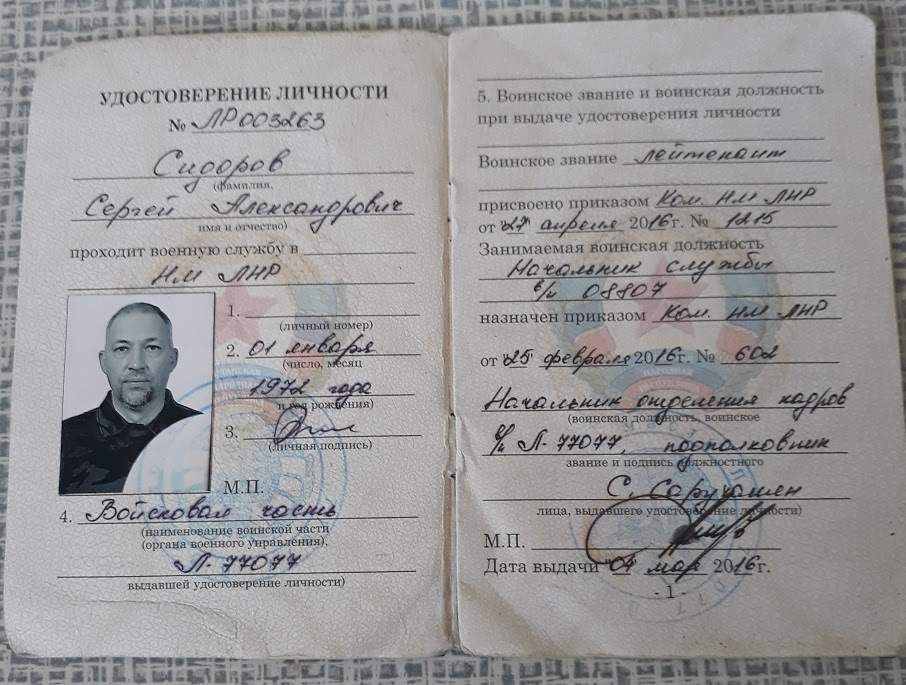 УДОСТОВЕРЕНИЕ ЛИЧНОСТИ
№ ЛР003263
Сидоров
(фамилия,
Сергей Александрович
имя и отчество)
проходит военную службу в
НМ ЛНР
1.
(личный номер)
2. 01 января
(число, месяц
1972 года
и год рождения)
3.
(личная подпись)
М.П.
4. Войсковая часть
(наименование воинской части
(органа военного управления),
Л-77077
выдавшей удостоверение личности)
5. Воинское звание и воинская должность
при выдаче удостоверения личности
Воинское звание лейтенант
присвоено приказом Ком. НМ ЛНР
от 27 апреля 2016г. № 1215
Занимаемая воинская должность
Начальник службы
в/ч 08807
назначен приказом Ком. НМ ЛНР
от 25 февраля 2016г. № 602
Начальник отделения кадров
(воинская должность, воинское
в/ч Л-77077, подполковник
звание и подпись должностного
С.
лица, выдавшего удостоверение личности)
М.П.
Дата выдачи мая 2016г.
- 1 -